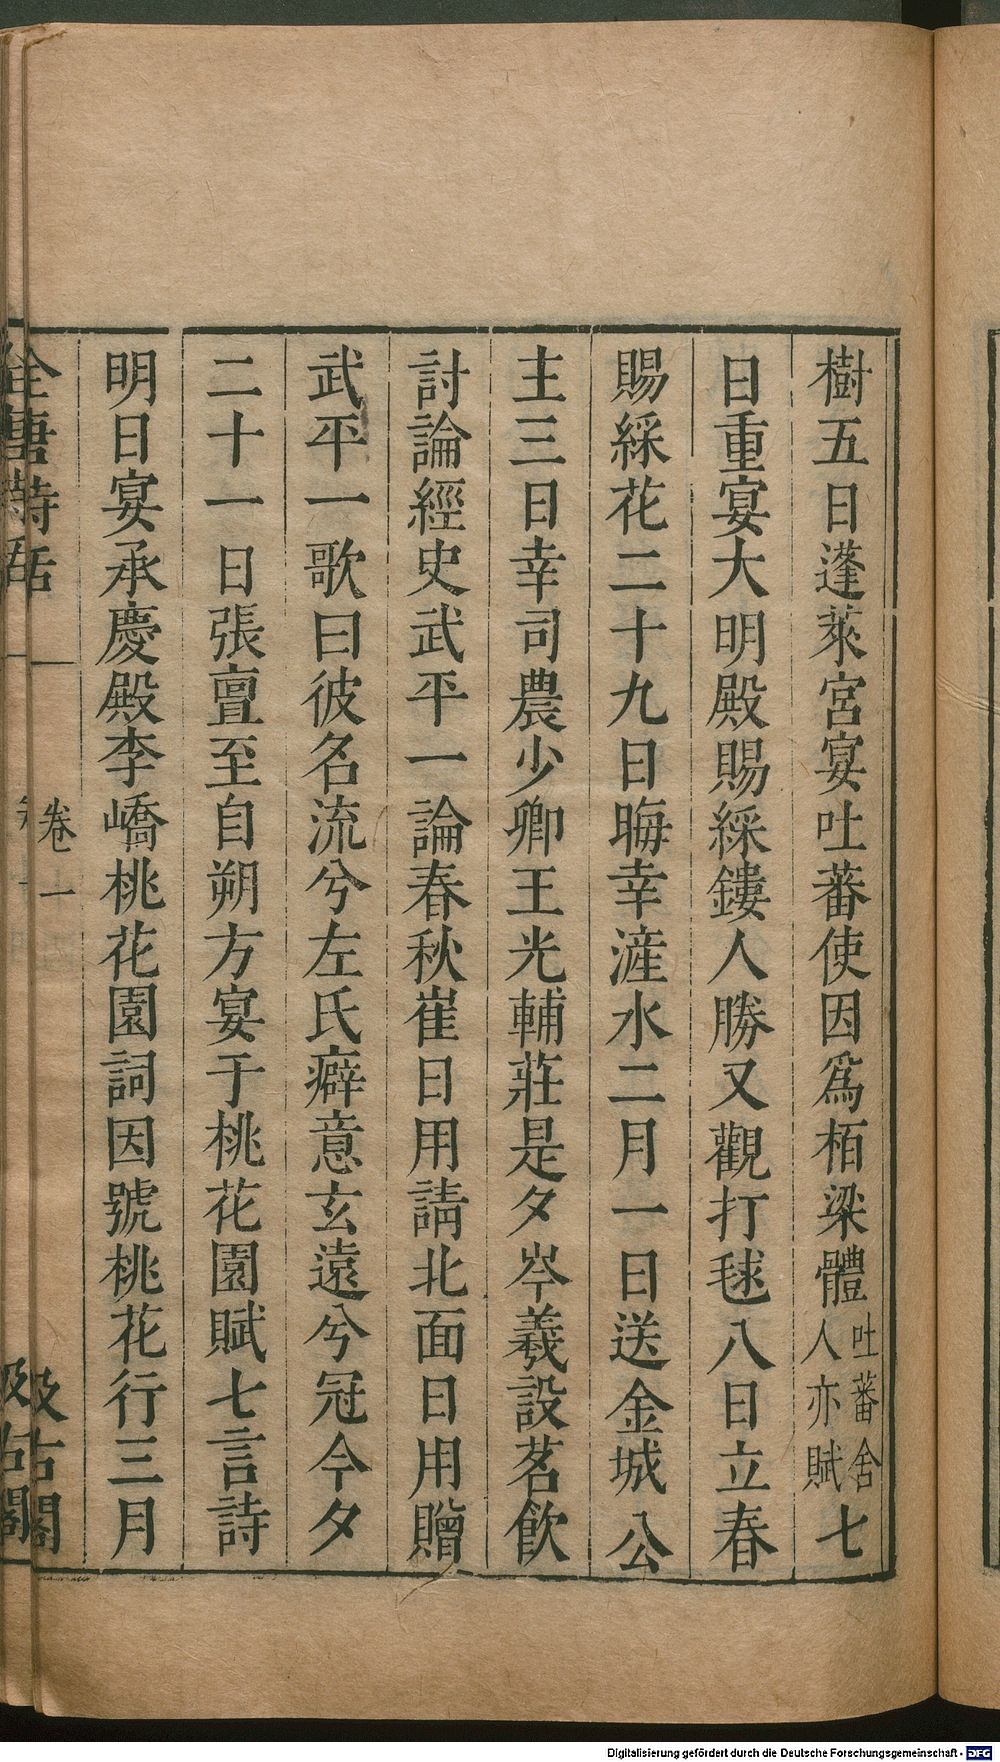 樹五日蓬萊宮宴吐蕃使因爲栢梁體吐蕃舍人亦賦七
日重宴大明殿賜綵鏤人勝又觀打毬八日立春
賜綵花二十九日晦幸滻水二月一日送金城公
主三日幸司農少卿王光輔莊是夕岑羲設茗飲
討論經史武平一論春秋崔日用請北面日用贈
武平一歌曰彼名流兮左氏癖意玄遠兮冠今夕
二十一日張亶至自朔方宴于桃花園賦七言詩
明日宴承慶殿李嶠桃花園詞因號桃花行三月
全唐詩話
卷一
汲古閣
Digitalisierung gefördert durch die Deutsche Forschungsgemeinschaft - DFG